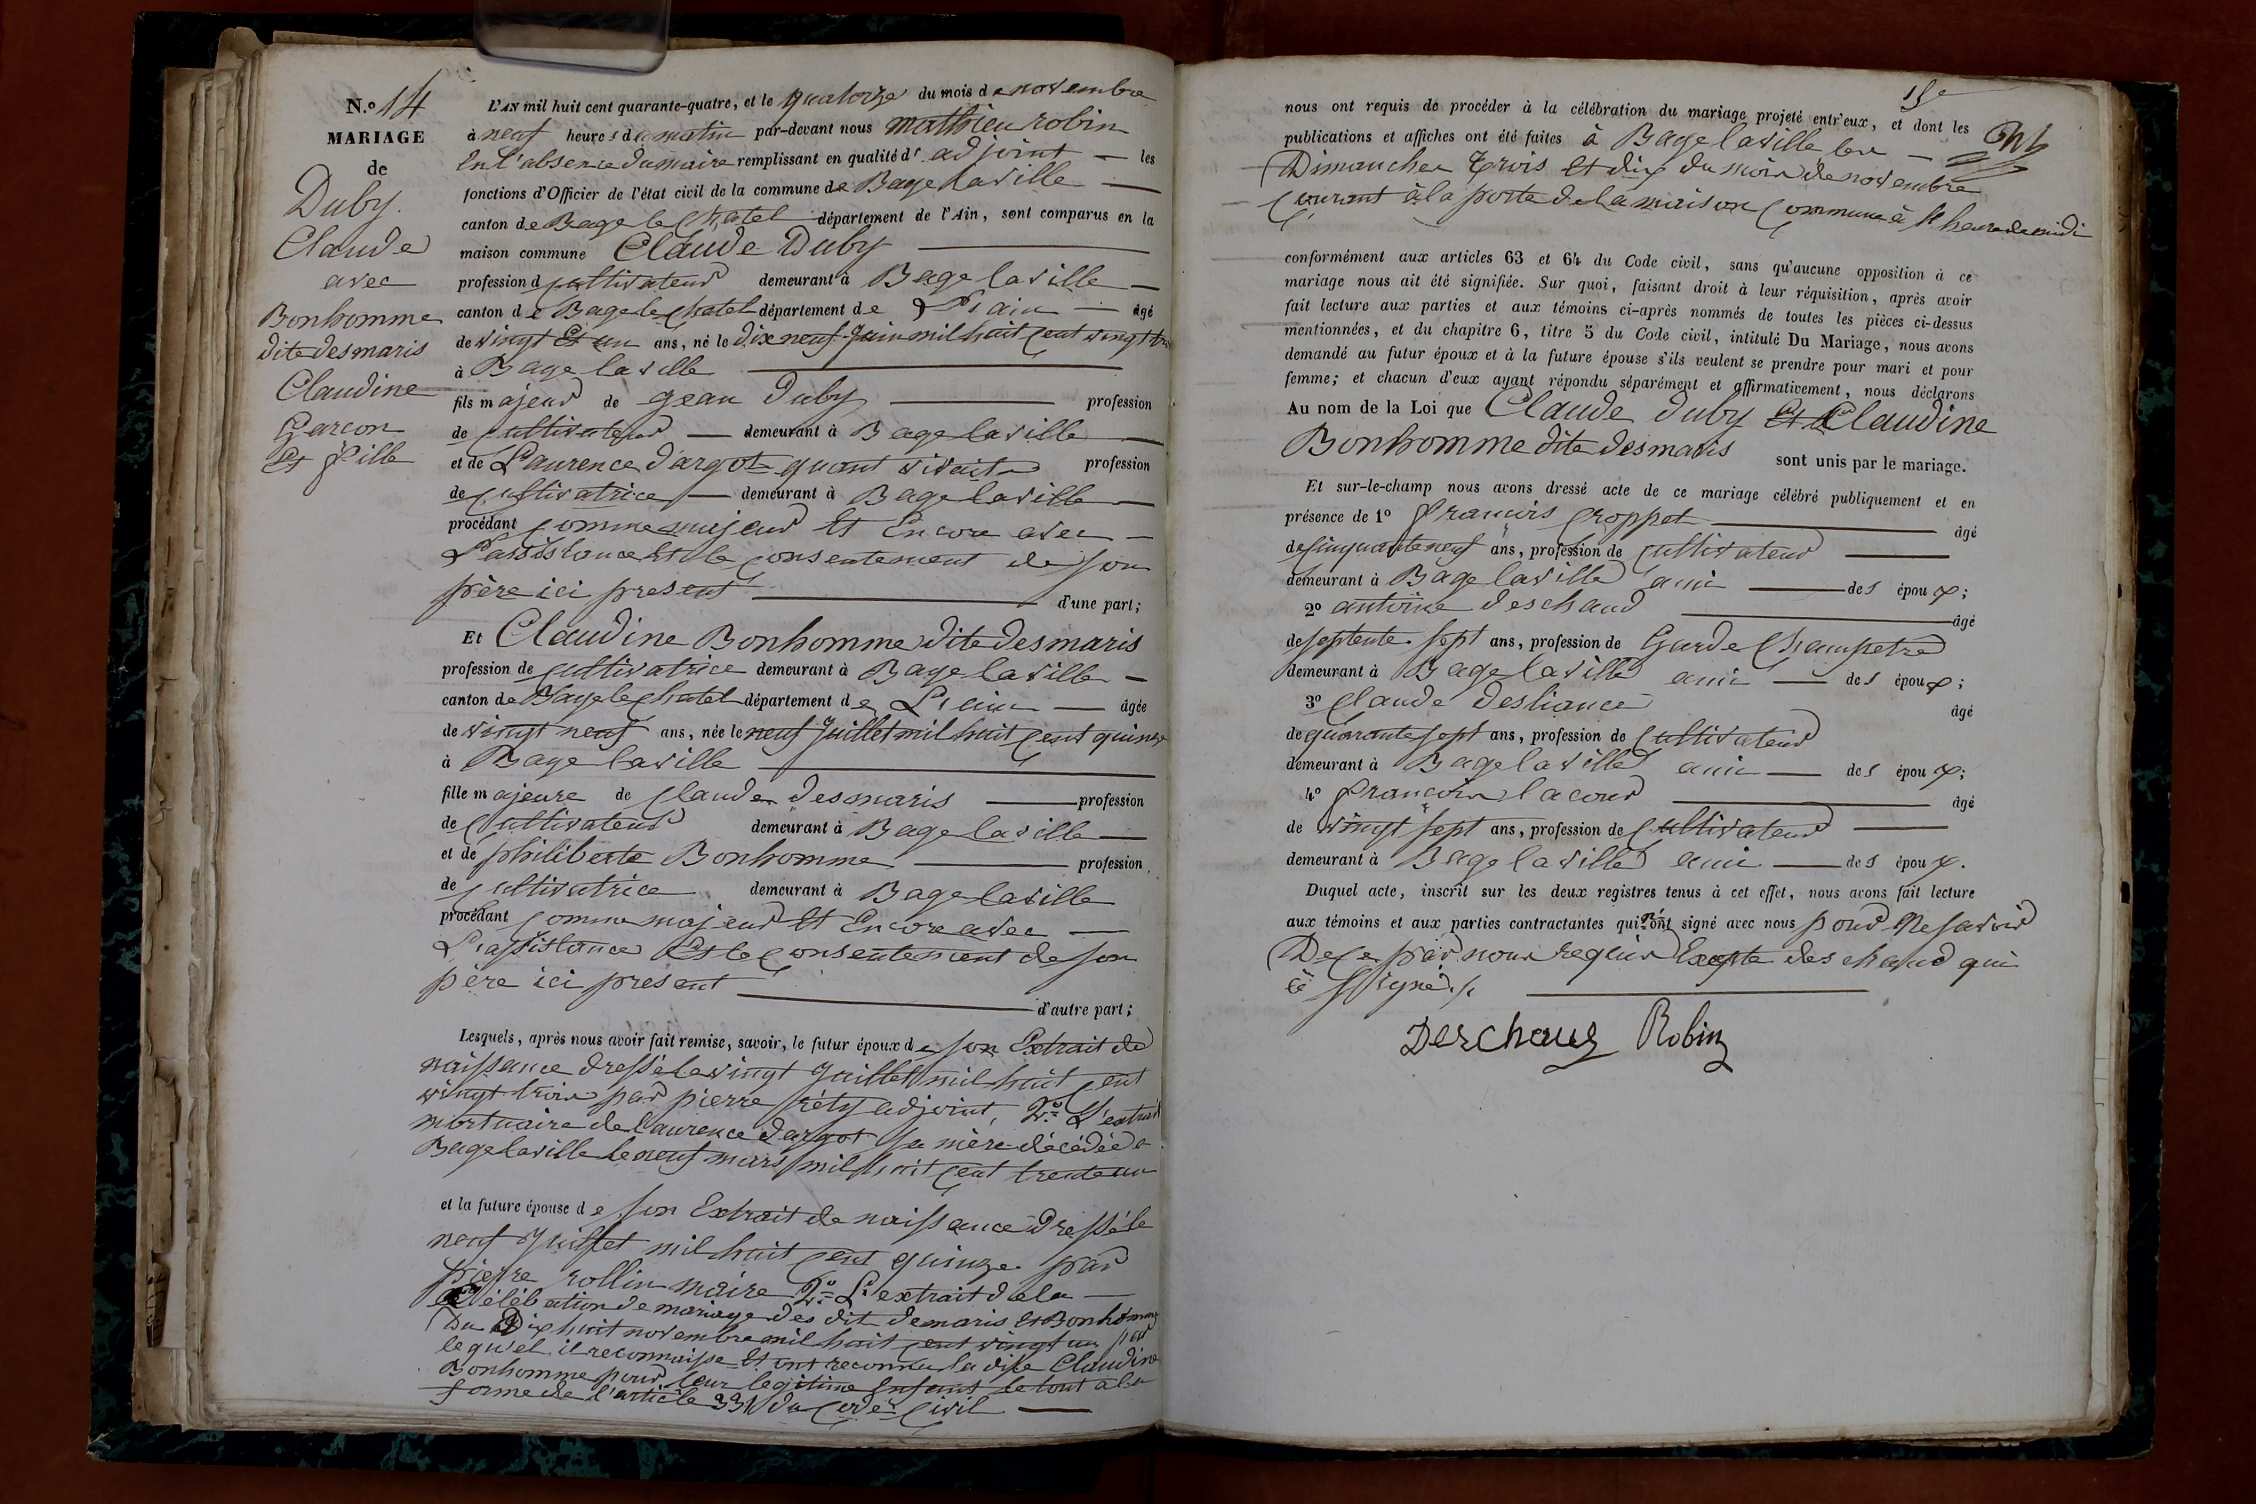 N.º 14
MARIAGE
de
Duby
Claude
avec
Bonhomme
dite desmaris
Claudine
Garcon
Et fille
L'AN mil huit cent quarante-quatre, et le quatorze du mois de novembre
à neuf heures du matin par-devant nous mathieu robin
En l'absence du maire remplissant en qualité d' adjoint — les
fonctions d'Officier de l'état civil de la commune de Bage laville —
canton de Bage le Chatel département de l'Ain, sont comparus en la
maison commune Claude Duby
profession d cultivateur demeurant à Bage laville —
canton de Bage le chatel département de L'ain — âgé
de vingt Et un ans, né le dix neuf Juin mil huit cent vingt trois
à Bage laville
fils majeur de jean Duby profession
de cultivateur — demeurant à Bage laville —
et de Laurence dargot quant vivait profession
de cultivatrice — demeurant à Bage laville —
procédant comme majeur Et Encore avec —
L'assistance Et le consentement de son
père ici present d'une part;
Et Claudine Bonhomme dite desmaris
profession de cultivatrice demeurant à Bage laville —
canton de Bage le chatel département de L'ain — âgée
de vingt neuf ans, née le neuf Juillet mil huit cent quinze
à Bage laville
fille majeure de claude desmaris profession
de cultivateur demeurant à Bage laville —
et de philiberte Bonhomme profession
de cultivatrice demeurant à Bage laville
procédant comme majeur Et Encore avec —
L'assistance Et le consentement de son
père ici present d'autre part;
Lesquels, après nous avoir fait remise, savoir, le futur époux de son Extrait de
naissance dressé le vingt Juillet mil huit cent
vingt trois par pierre réty adjoint, 2º L'extrait
mortuaire de Laurence dargot sa mère décédée a
Bage laville le neuf mars mil huit cent trente un
et la future épouse de son Extrait de naissance dressé le
neuf Juillet mil huit cent quinze par
pierre rollin maire 2º L'extrait de la —
Célébation de mariage des dit demaris Et Bonhomme
Du Dix huit novembre mil huit cent vingt un par
lequ'el il reconnaisse Et ont reconnu la dite Claudine
Bonhomme pour leur legitime Enfant le tout a la
forme de l'article 331 du code Civil —
15e
nous ont requis de procéder à la célébration du mariage projeté entr'eux, et dont les
publications et affiches ont été faites à Bage laville les —
Dimanches trois Et dix du mois de novembre
Courant à la porte de la maison Commune à heure de midi
conformément aux articles 63 et 64 du Code civil, sans qu'aucune opposition à ce
mariage nous ait été signifiée. Sur quoi, faisant droit à leur réquisition, après avoir
fait lecture aux parties et aux témoins ci-après nommés de toutes les pièces ci-dessus
mentionnées, et du chapitre 6, titre 5 du Code civil, intitulé Du Mariage, nous avons
demandé au futur époux et à la future épouse s'ils veulent se prendre pour mari et pour
femme; et chacun d'eux ayant répondu séparément et affirmativement, nous déclarons
Au nom de la Loi que Claude duby Et Claudine
Bonhomme dite desmaris sont unis par le mariage.
Et sur-le-champ nous avons dressé acte de ce mariage célébré publiquement et en
présence de 1º francois croppet âgé
de cinquante neuf ans, profession de cultivateur
demeurant à Bage laville ami — des époux;
2º antoine deschaud âgé
de septente sept ans, profession de Garde Champetre
demeurant à Bage laville ami — des époux;
3º claude desliance âgé
de quarante sept ans, profession de cultivateur
demeurant à Bage laville ami — des époux;
4º francois lacour âgé
de vingt sept ans, profession de cultivateur —
demeurant à Bage laville ami — des époux.
Duquel acte, inscrit sur les deux registres tenus à cet effet, nous avons fait lecture
aux témoins et aux parties contractantes qui n'ont signé avec nous pour ne savoir
De ce par nous requis Excepte deschaud qui
à signé
Deschaud Robin